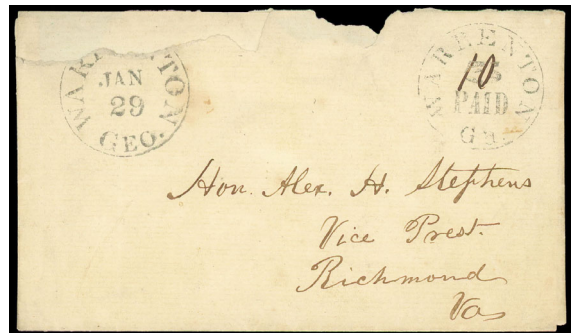 WARRENTON
JAN
29
GEO.
WARRENTON
10
PAID
Ga.
Hon. Alex. H. Stephens
Vice Prest.
Richmond
Va